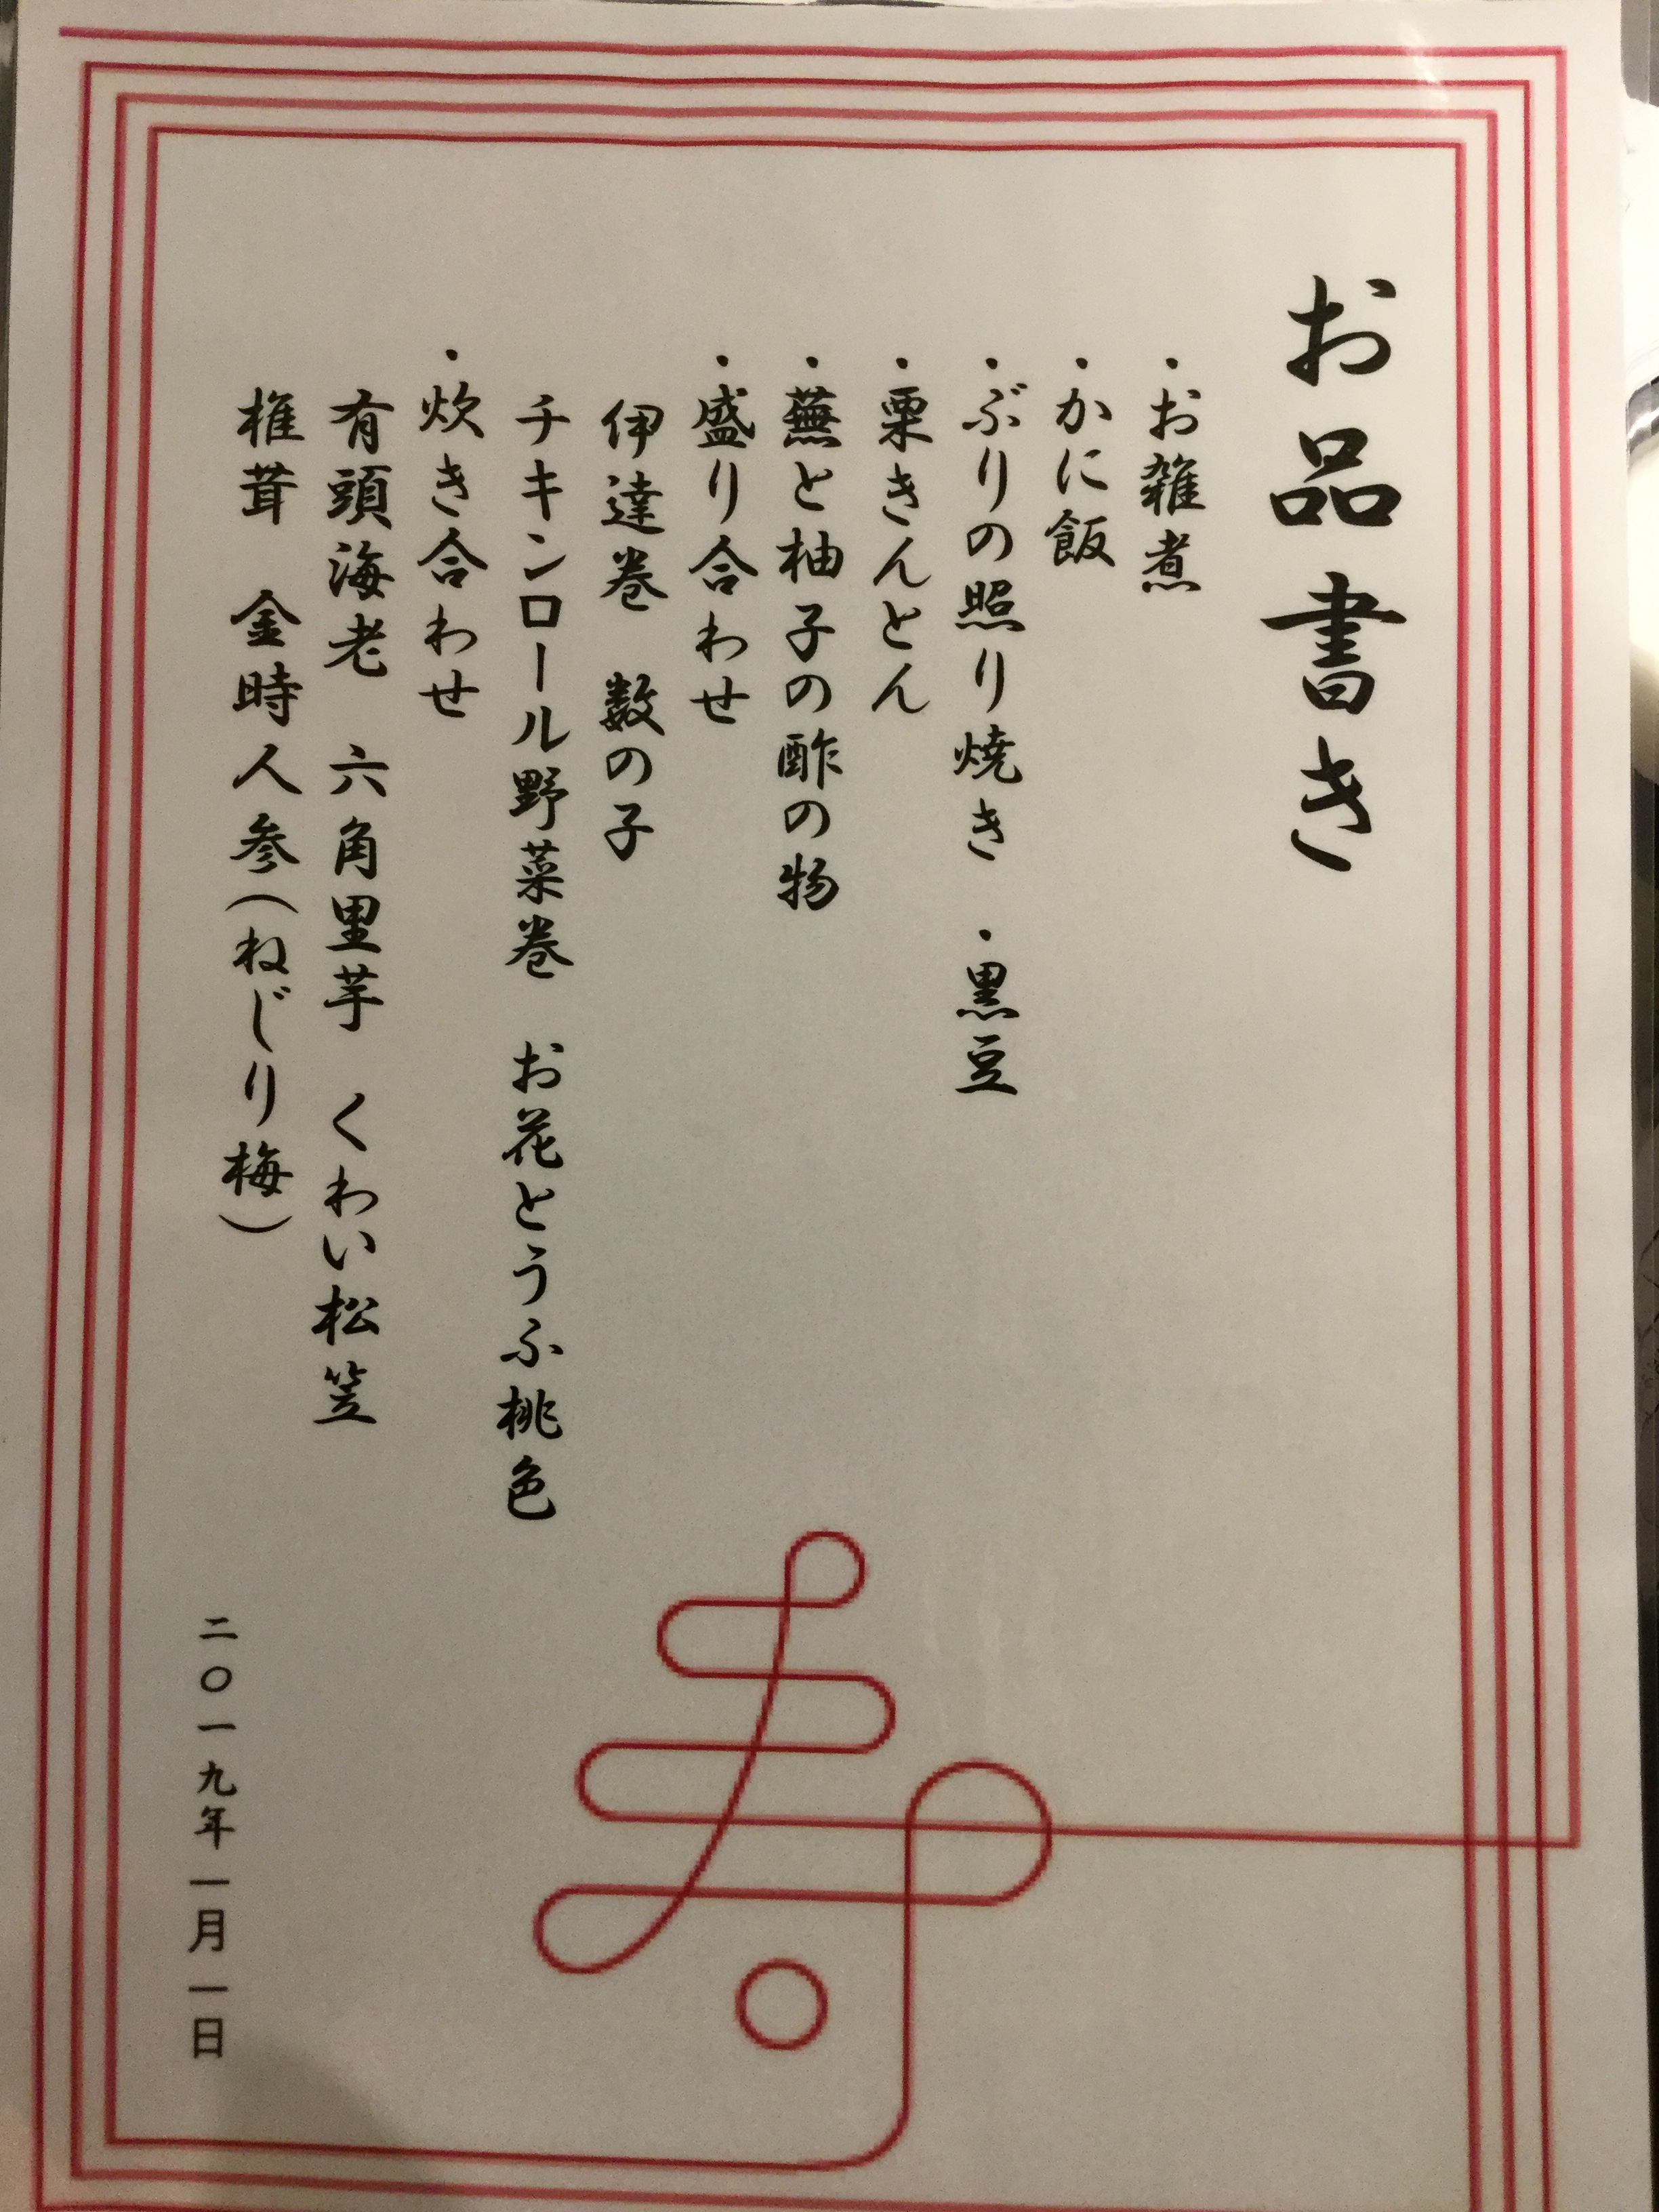 お品書き
・お雑煮
・かに飯
・ぶりの照り焼き ・黒豆
・栗きんとん
・蕪と柚子の酢の物
・盛り合わせ
伊達巻 数の子
チキンロール野菜巻 お花とうふ桃色
・炊き合わせ
有頭海老 六角里芋 くわい松笠
椎茸 金時人参(ねじり梅)
二〇一九年一月一日